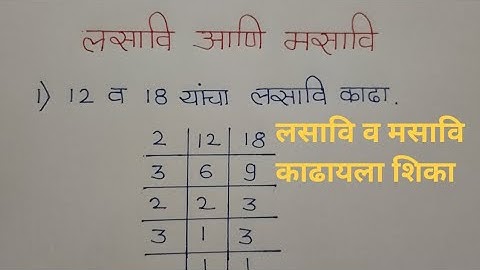 लसावि आणि मसावि
1) 12 व 18 यांचा लसावि काढा.
2 12 18
3 6 9
2 2 3
3 1 3
1 1
लसावि व मसावि
काढायला शिका